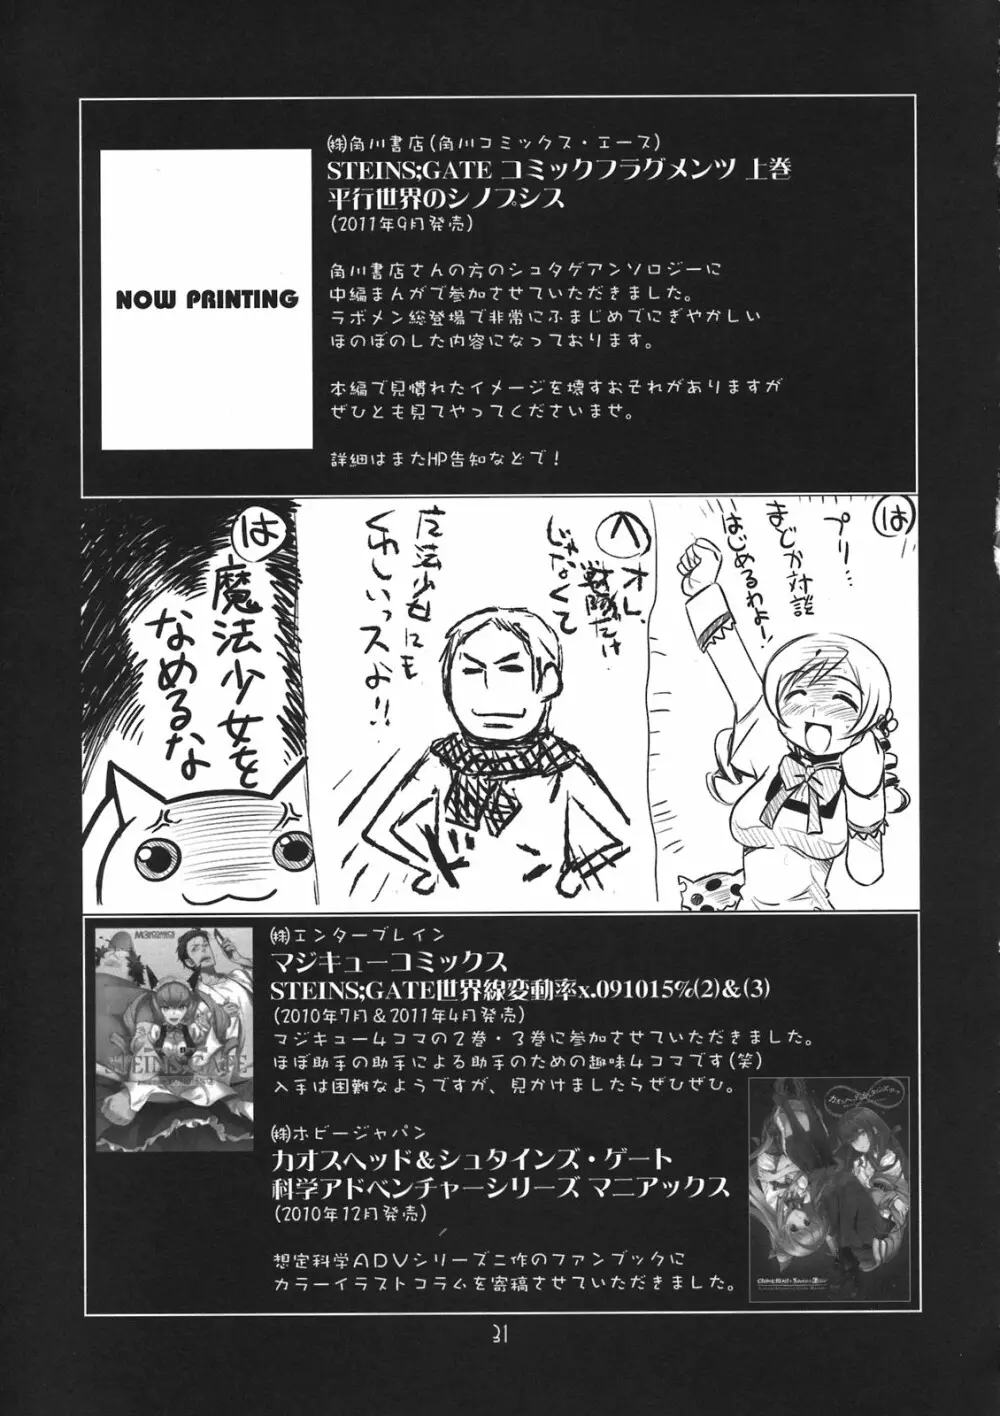 ㈱角川書店(角川コミックス・エース)
STEINS;GATE コミックフラグメンツ 上巻
平行世界のシノプシス
(2011年9月発売)
NOW PRINTING
角川書店さんの方のシュタゲアンソロジーに
中編まんがで参加させていただきました。
ラボメン総登場で非常にふまじめでにぎやかしい
ほのぼのした内容になっております。
本編で見慣れたイメージを壊すおそれがありますが
ぜひとも見てやってくださいませ。
詳細はまたHP告知などで!
は
プリ…
まどか対談
はじめるわよー!
へ
オレ、
戦隊だけ
じゃなくて
魔法少女にも
くわしいっスよ!!
は
魔法少女を
なめるな
㈱エンターブレイン
マジキューコミックス
STEINS;GATE世界線変動率x.091015%(2)&(3)
(2010年7月&2011年4月発売)
マジキュー4コマの2巻・3巻に参加させていただきました。
ほぼ助手の助手による助手のための趣味4コマです(笑)
入手は困難なようですが、見かけましたらぜひぜひ。
㈱ホビージャパン
カオスヘッド&シュタインズ・ゲート
科学アドベンチャーシリーズ マニアックス
(2010年12月発売)
想定科学ADVシリーズ二作のファンブックに
カラーイラストコラムを寄稿させていただきました。
STEINS;GATE
31